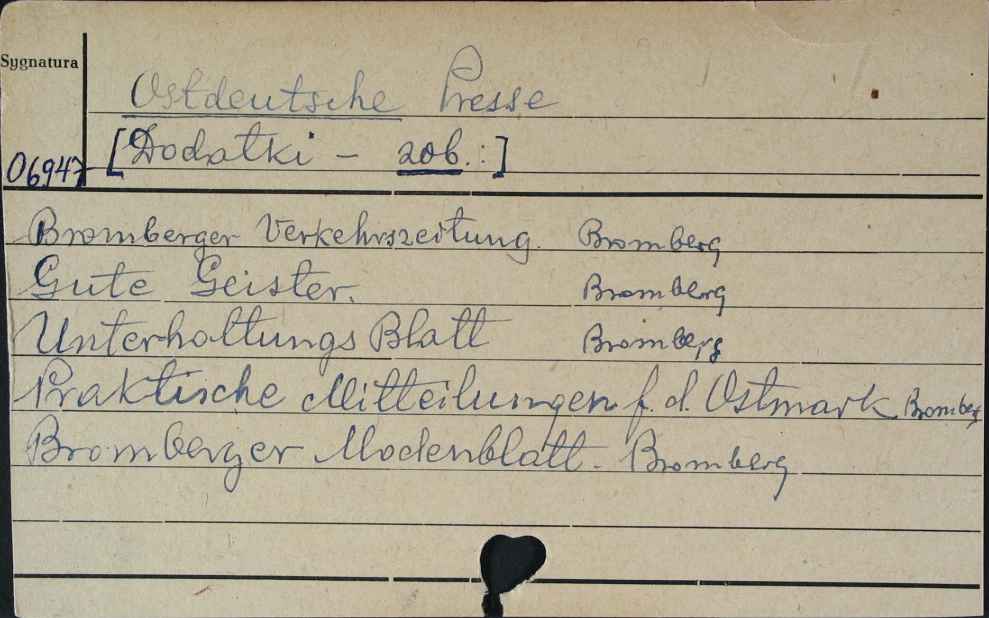 Sygnatura
Ostdeutsche Presse
06947 [Dodatki - zob.:]
Bromberger Verkehrszeitung. Bromberg
Gute Geister. Bromberg
Unterhaltungs Blatt Bromberg
Praktische Mitteilungen f. d. Ostmark Bromberg
Bromberger Modenblatt. Bromberg